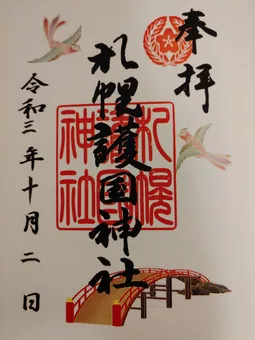 奉拝
札幌護国神社
札幌護国神社
令和三年十月二日